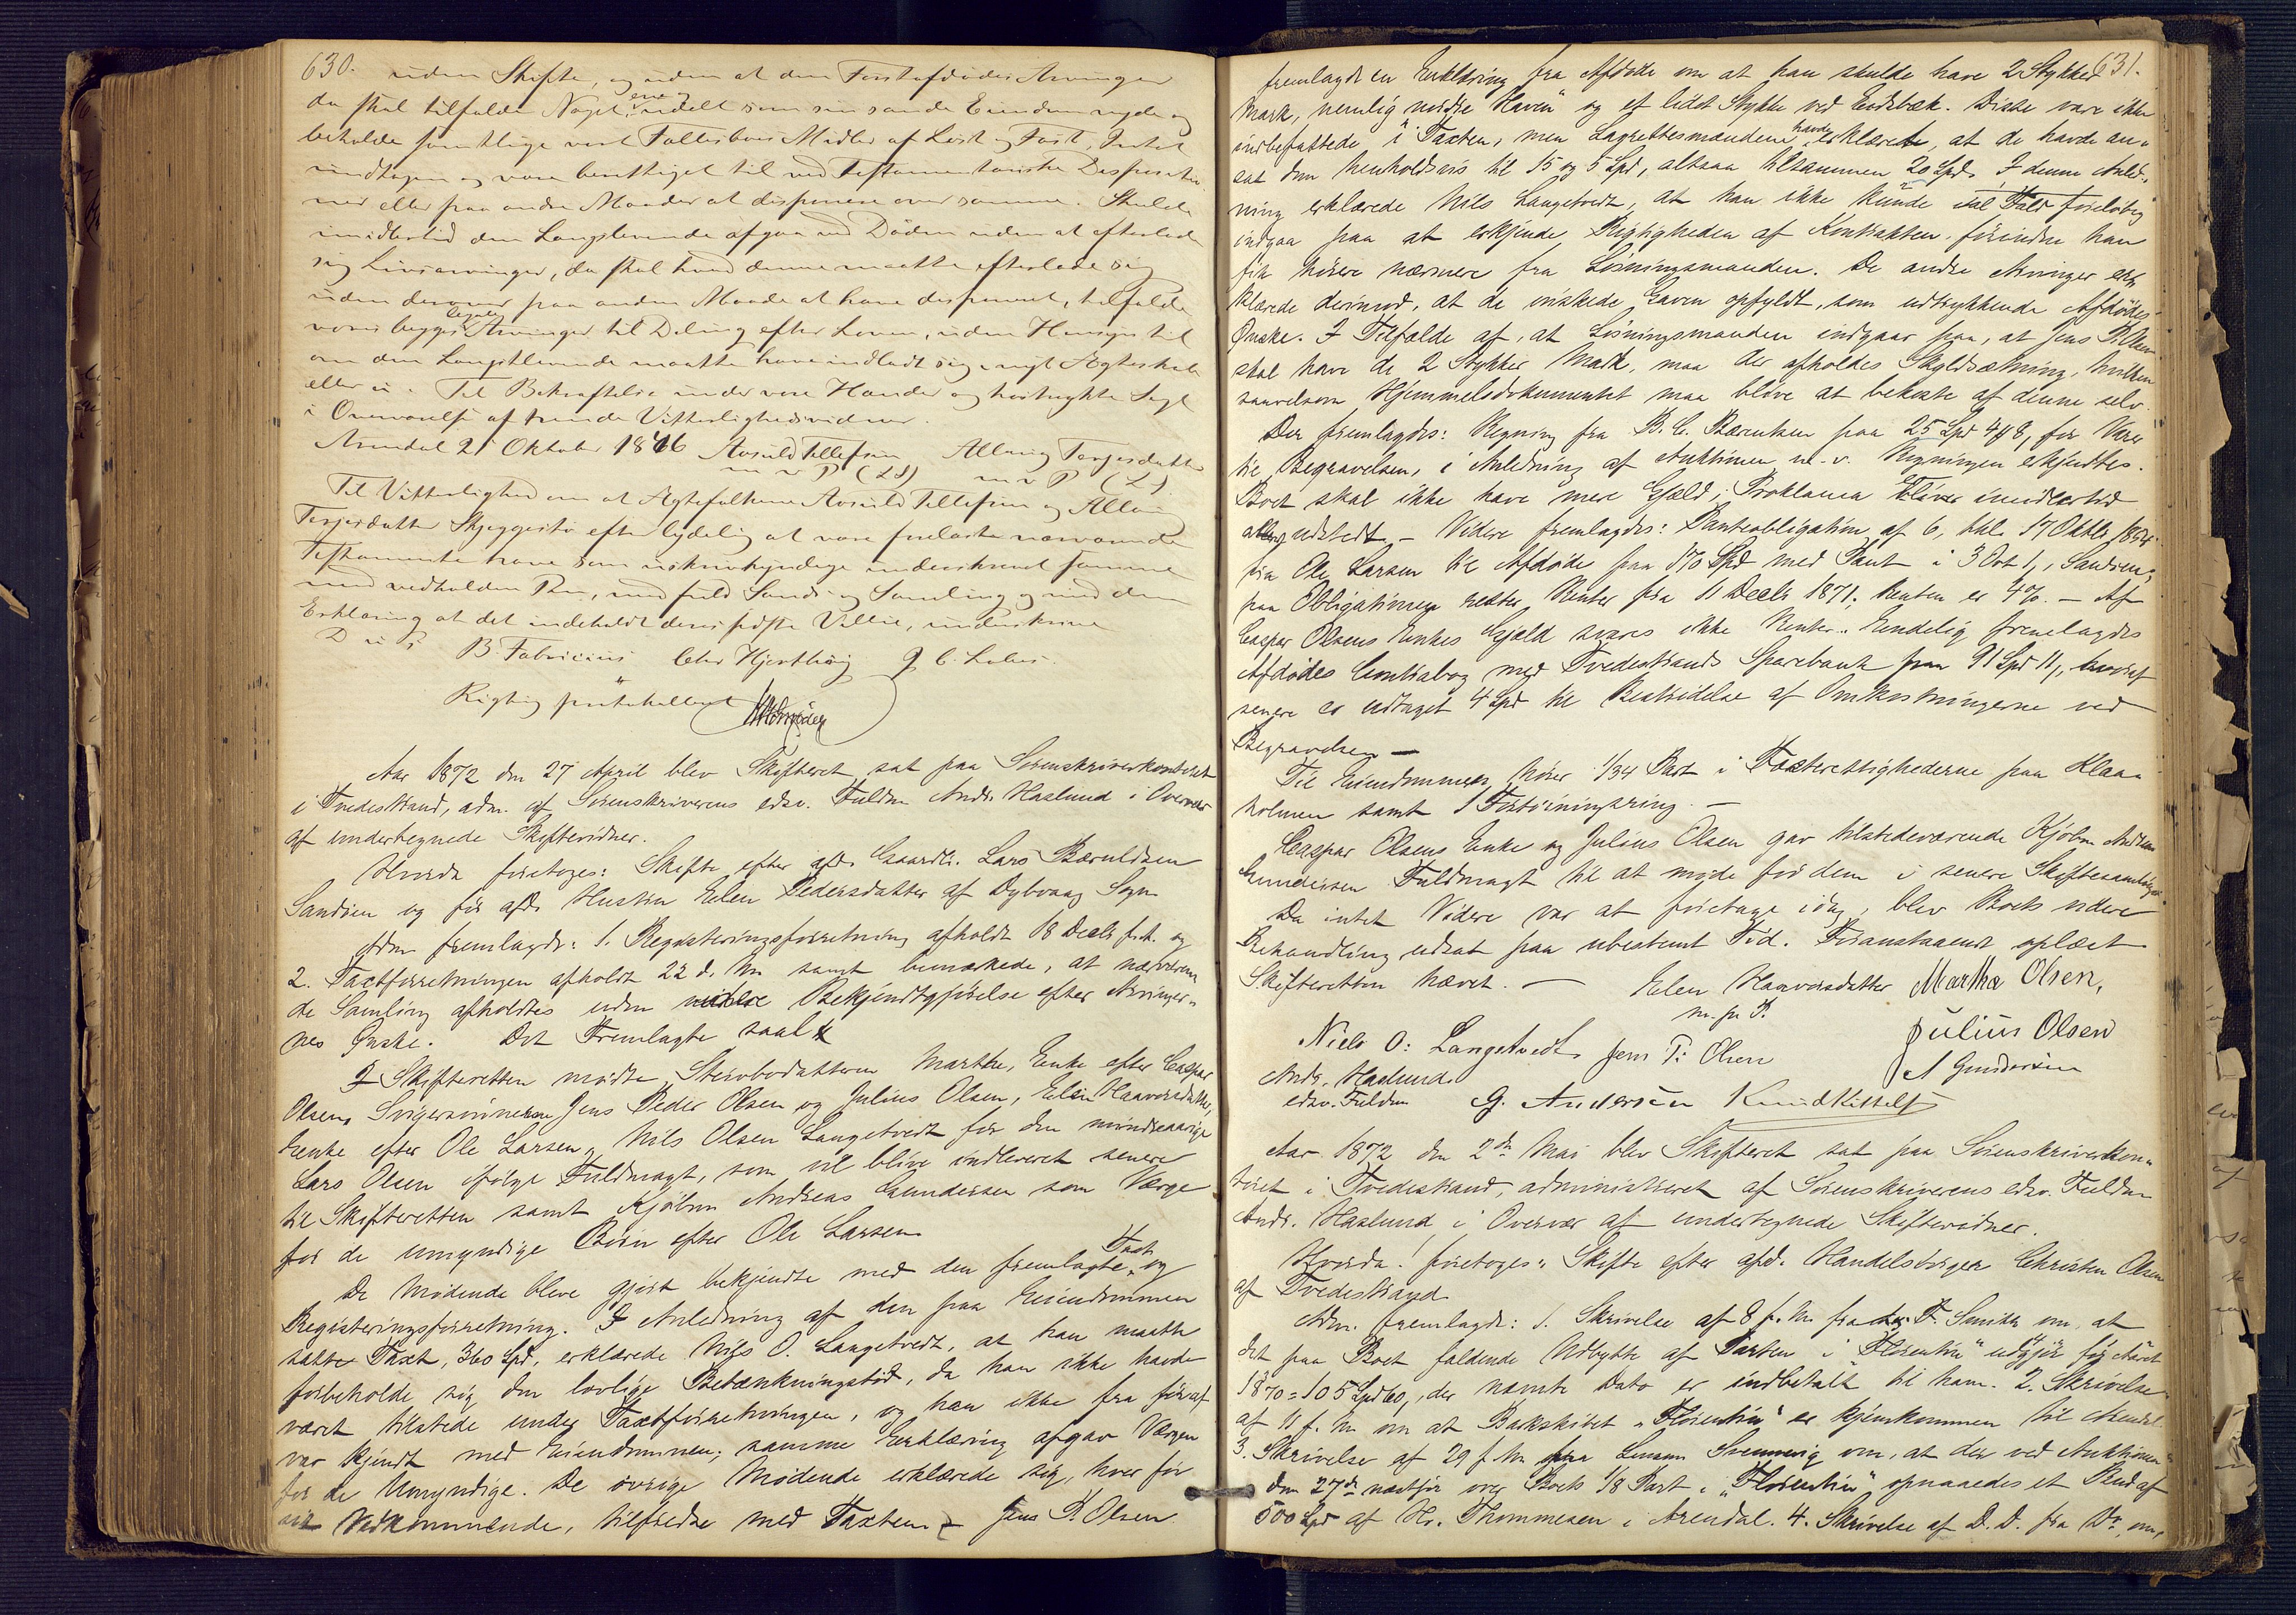 630.
uden Skifte, og uden at den Førstafdødes Arvinger
da skal tilfalde Noget, ene og udelt som sin sande Eiendom nyde og
beholde samtlige vort Fællesboes Midler af Løst og Fast, Intet
undtagen og være berettiget til ved Testamentariske Dispositio-
ner eller paa andre Maader at disponere over samme. Skulde
imidlertid den Længstlevende afgaa ved Døden uden at efterlade
sig Livsarvinger, da skal hvad denne maatte efterlade sig
uden derover paa anden Maade at have disponeret, tilfalde
vores begges legale Arvinger til Deling efter Loven, uden Hensyn til
om den Længstlevende maatte have indladt sig i nyt Ægteskab
eller ei. Til Bekræftelse under vore Hænder og hostrykte Segl
i Overværelse af tvende Vitterlighedsvidner.
Arendal 21 Oktober 1846 Aosuld Tellefsen Allaug Terjesdatter
m v P (LS) m v P (LS)
Til Vitterlighed om at Ægtefolkene Aosuld Tellefsen og Allaug
Terjesdatter Skjeggestø efter lydelig at være forelæste nærværende
Testamente have som uskrivekyndige underskrevet samme
med vedholden Pen, med fuld Sands og Samling og med den
Erklæring at det indeholdt deres sidste Villie, underskrive
D u S B. Fabricius Chr Hjorthøy J. C.
Rigtig protokolleret
Aar 1872 den 27 April blev Skifteret sat paa Sorenskriverkontoret
i Tvedestrand, adm. af Sorenskriverens edsv. Fuldm Andr. Haslund i Overvær
af undertegnede Skiftevidner.
Hvorda foretoges: Skifte efter afd. Gaardbr. Lars Bæruldsen
Sandøen og før afd. Hustru Elen Pedersdatter af Dybvaag Sogn
Adm fremlagde: 1. Registreringsforretning afholdt 18 Decbr f. A. og
2. Taxtforretningen afholdt 22 d. Mn samt bemærkede, at nærværen
de Samling afholdtes uden videre Bekjendtgjørelse efter Arvinger-
nes Ønske. Det Fremlagte saal
I Skifteretten mødte Stervbodatteren Marthe, Enke efter Caspar
Olsen, Svigersønnerne Jens Peder Olsen og Julius Olsen, Elen Haavorsdatter,
Enke efter Ole Larsen, Nils Olsen Langetvedt for den mindreaarige
Lars Olsen ifølge Fuldmagt, som vil blive indleveret senere
til Skifteretten samt Kjøbm Andreas Gundersen som Værge
for de umyndige Børn efter Ole Larsen
De Mødende bleve gjort bekjendte med den fremlagte Taxt og
Registreringsforretning. I Anledning af den paa Eiendommen
satte Taxt, 360 Spd, erklærede Nils O. Langetvedt, at han maatte
forbeholde sig den lovlige Betænkningstid, da han ikke havde
været tilstede under Taxtforretningen, og han ikke fra før af
var kjendt med Eiendommen; samme Erklæring afgav Værgen
for de Umyndige. De øvrige Mødende erklærede sig, hver for
sit Vedkommende, tilfredse med Taxten – Jens P. Olsen
631.
fremlagde en Erklæring fra Afdøde om at han skulde have 2 Stykker
Mark, nemlig „nordre Haven" og et lidet Stykke ved Endebæk. Disse vare ikke
indbefattede i Taxten, men Lagrettesmændene havde erklæret, at de havde an-
sat dem henholdsvis til 15 og 5 Spd, altsaa tilsammen 20 Spd. I denne Anled-
ning erklærede Nils Langetvedt, at han ikke kunde ial Fald foreløbig
indgaa paa at erkjende Rigtigheden af Kontrakten, førend han
fik høre nærmere fra Løsningsmanden. De andre Arvinger er-
klærede derimod, at de ønskede Gaven opfyldt, som udtrykkende Afdødes
Ønske. I Tilfælde af, at Løsningsmanden indgaar paa, at Jens P. Olsen
skal have de 2 Stykker Mark, maa der afholdes Skyldsætning, hvilken
saavelsom Hjemmelsdokumentet maa blive at bekoste af denne selv.
Der fremlagdes: Regning fra B. C. Bærentsen paa 25 Spd 4 ß 8, for Varer
til Begravelsen, i Anledning af Auktionen m. v. Regningen erkjendtes.
Boet skal ikke have mere Gjæld; Proklama bliver imidlertid
udstedt. – Videre fremlagdes: Panteobligation af 6, thl. 17 Oktbr 1864
fra Ole Larsen til Afdøde paa 170 Spd med Pant i 3 Ort 1, i Sandøen;
paa Obligationen rester Renter fra 11 Decbr 1871. Renten er 4%. – Af
Caspar Olsens Enkes Gjæld svares ikke Renter. Endelig fremlagdes
Afdødes Contrabog med Tvedestrands Sparebank paa 91 Spd 11, hvoraf
senere er udtaget 4 Spd til Bestridelse af Omkostningerne ved
Begravelsen –
Til Eiendommen hører 1/34 Part i Fæsterettighederne paa Klaa-
holmen samt 1 Fortøiningsring. –
Caspar Olsens Enke og Julius Olsen gav tilstedeværende Kjøbm Andreas
Gundersen Fuldmagt til at møde for dem i senere Skiftesamlinger.
Da intet Videre var at foretage idag, blev Boets videre
Behandling udsat paa ubestemt Tid. Foranstaaende oplæst
Skifteretten hævet. – Elen Haavorsdatter Martha Olsen,
m. p. P.
Niels O: Langetvedt Jens P: Olsen Julius Olsen
Andr. Haslund A Gundersen
edsv. Fuldm G. Andersen Knud Kittelsen
Aar 1872 den 2den Mai blev Skifteret sat paa Sorenskriverkon-
toret i Tvedestrand, administreret af Sorenskriverens edsv. Fuldm
Andr. Haslund i Overvær af undertegnede Skiftevidner.
Hvorda: foretoges: Skifte efter afd. Handelsborger Christen Olsen
af Tvedestrand
Adm. fremlagde: 1. Skrivelse af 8 f. M. fra F. Smith om, at
det paa Boet faldende Udbytte af Parten i „Florentin" udgjør for Aaret
1870 = 105 Spd 60, der nævnte Dato er indbetalt til ham. 2. Skrivelse
af 11 f. M. om at Barkskibet „Florentin" er hjemkommen til Arendal.
3. Skrivelse af 29 f. M. fra Lensm Svennevig om, at der ved Auktionen
den 27de næstfør over Boets 1/8 Part i „Florentin" opnaaedes et Bud af
500 Spd af Hr. Thommesen i Arendal. 4. Skrivelse af D. D. fra Do, om,